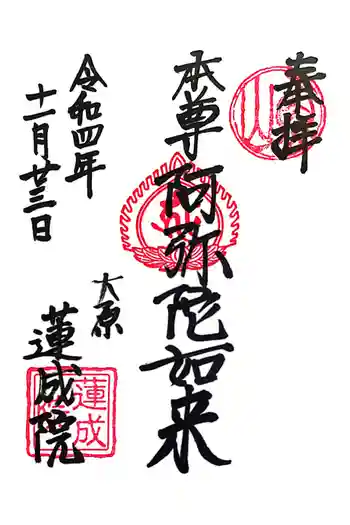 奉拝
本尊 阿弥陀如来
令和四年
十一月廿三日
大原
蓮成院
蓮成院